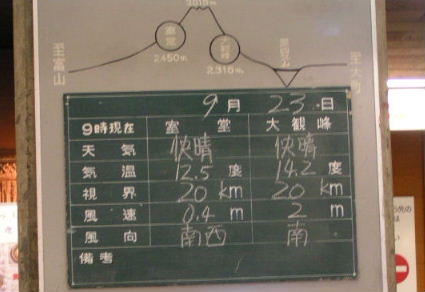 3015m
室堂
2,450m.
大観峰
2,316m.
至富山
至大町
9月23日
9時現在 室堂 大観峰
天気 快晴 快晴
気温 12.5度 14.2度
視界 20km 20km
風速 0.4m 2m
風向 南西 南
備考